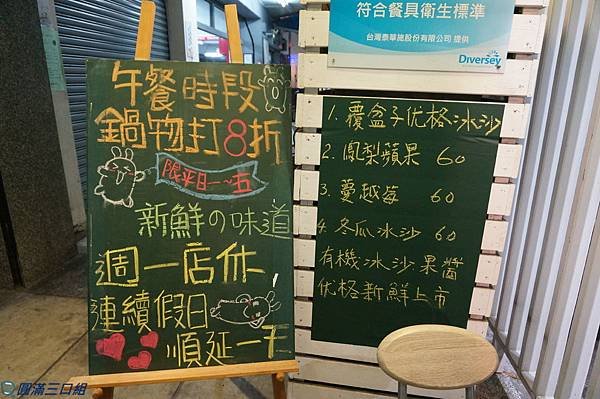 午餐時段
鍋物打8折
限平日一~五
新鮮の味道
週一店休
連續假日
順延一天
符合餐具衛生標準
台灣泰華施股份有限公司 提供
Diversey
1. 覆盆子优格冰沙
2. 鳳梨蘋果 60
3. 蔓越莓 60
4. 冬瓜冰沙 60
有機冰沙.果醬
优格新鮮上市
圓滿三口組